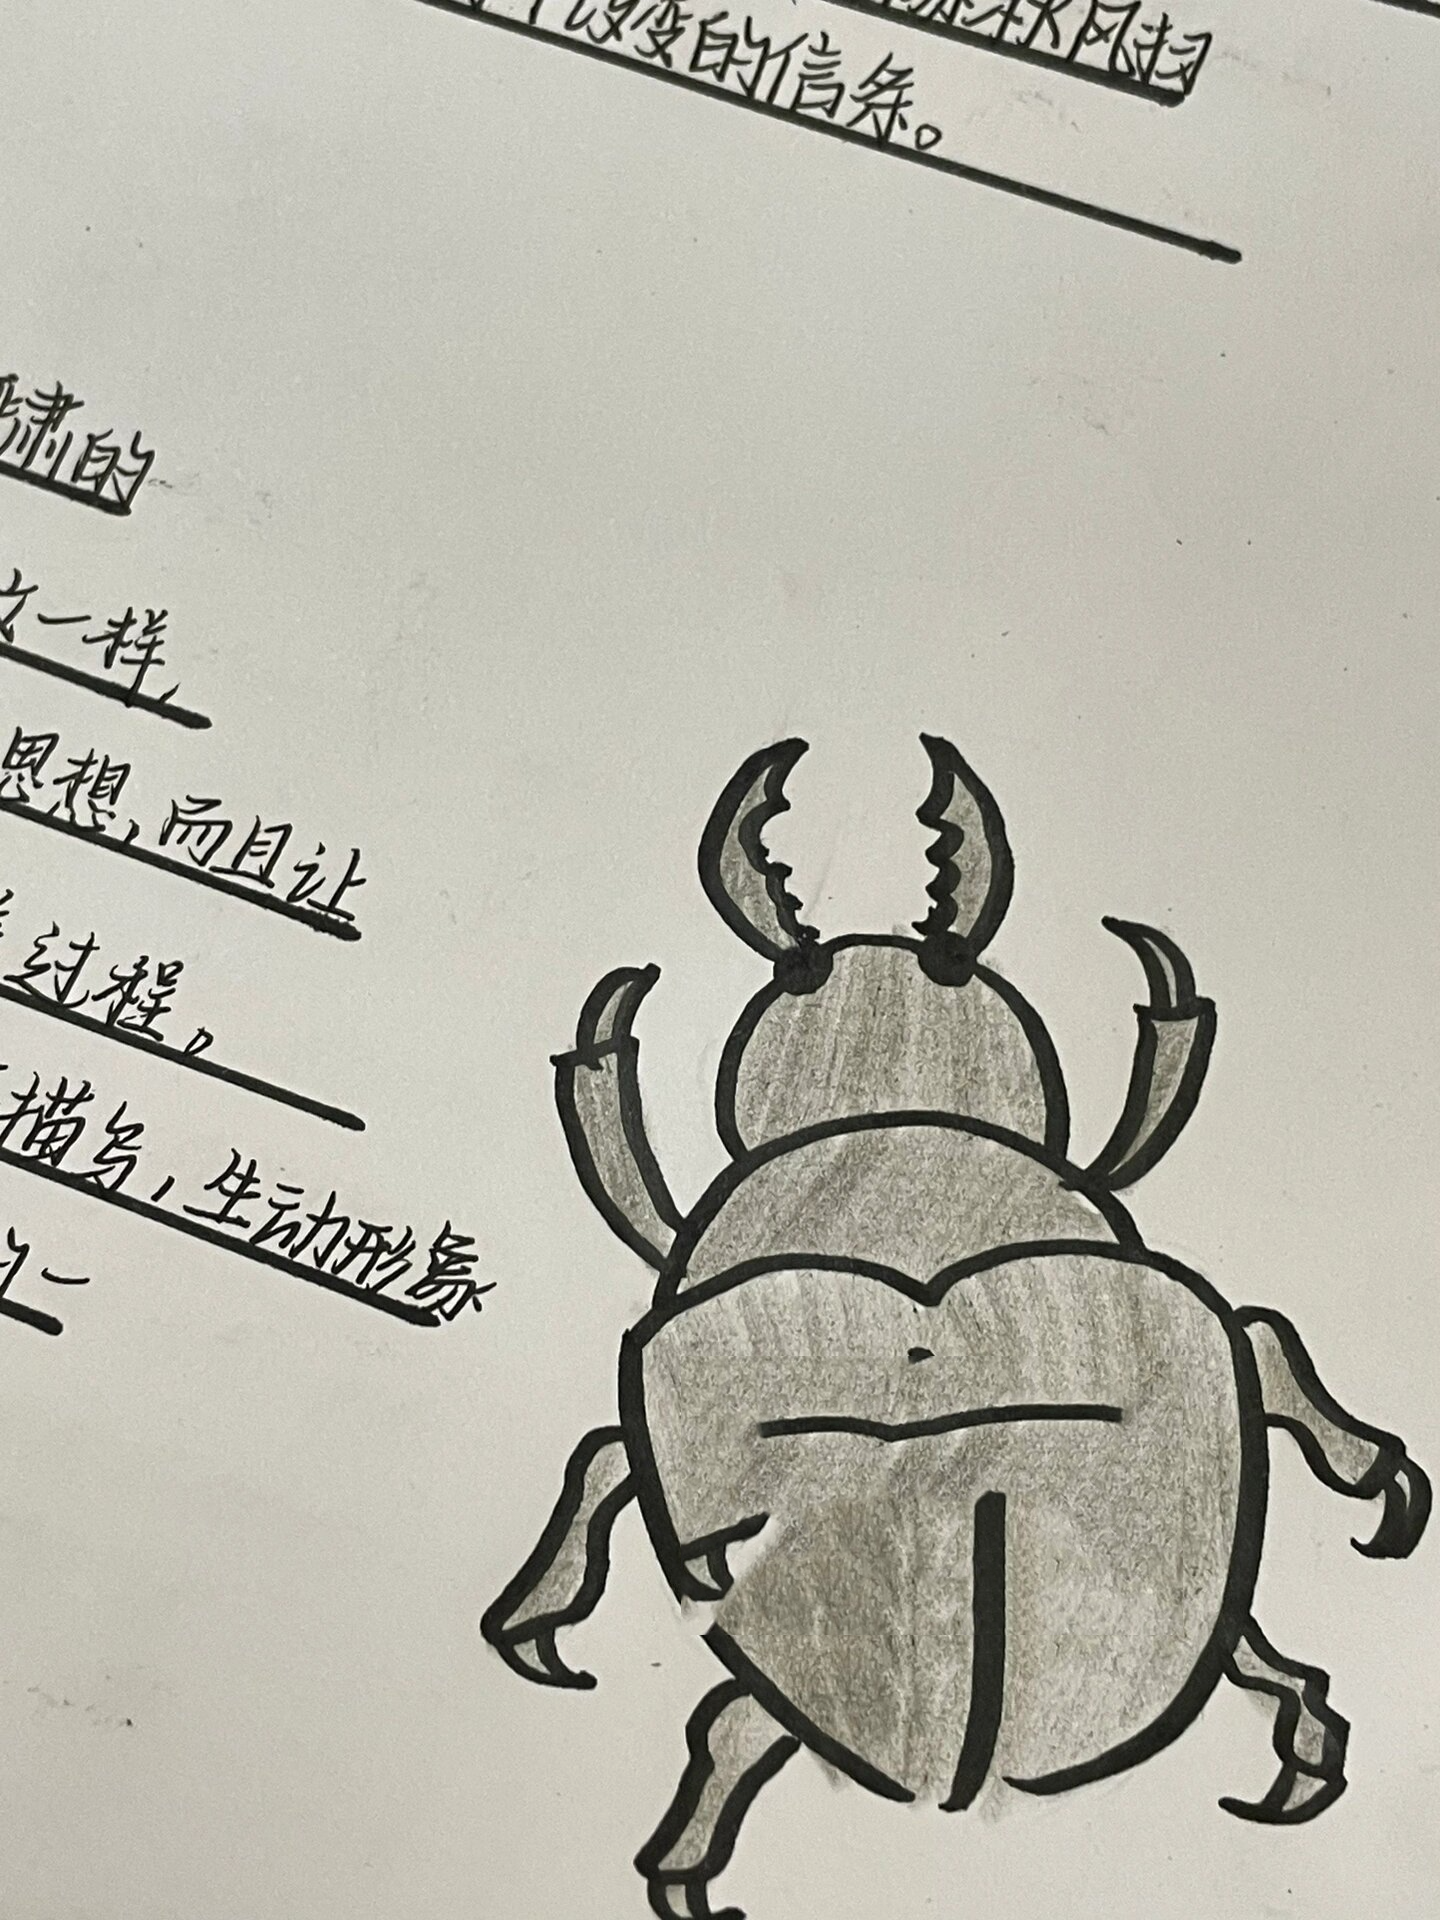 秋风扫
改变的信条。
肃的
一样，
思想，而且让
过程。
描写，生动形象
一